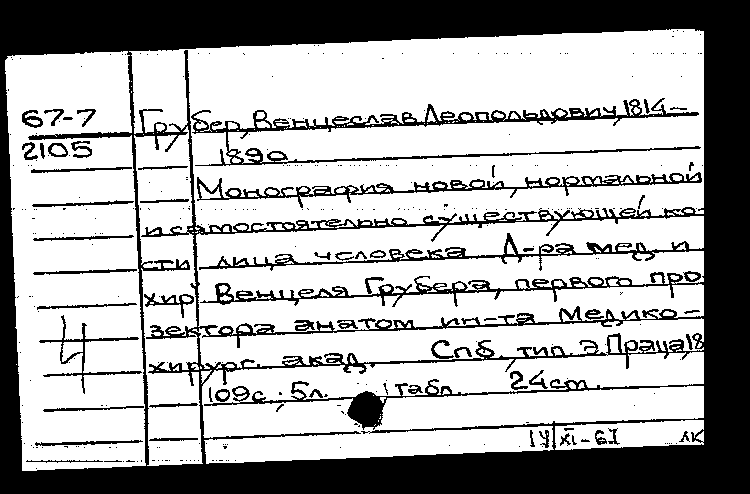 67-7
2105
Грубер, Венцеслав Леопольдович, 1814-
1890.
Монография новой, нормальной
и самостоятельно существующей ко-
сти лица человека Д-ра мед. и
хир Венцеля Грубера, первого про
зектора анатом ин-та Медико-
хирург. акад. Спб, тип. Э. Праца, 18
109с.; 5л. табл. 24cm.
4
XI-61 ЛК